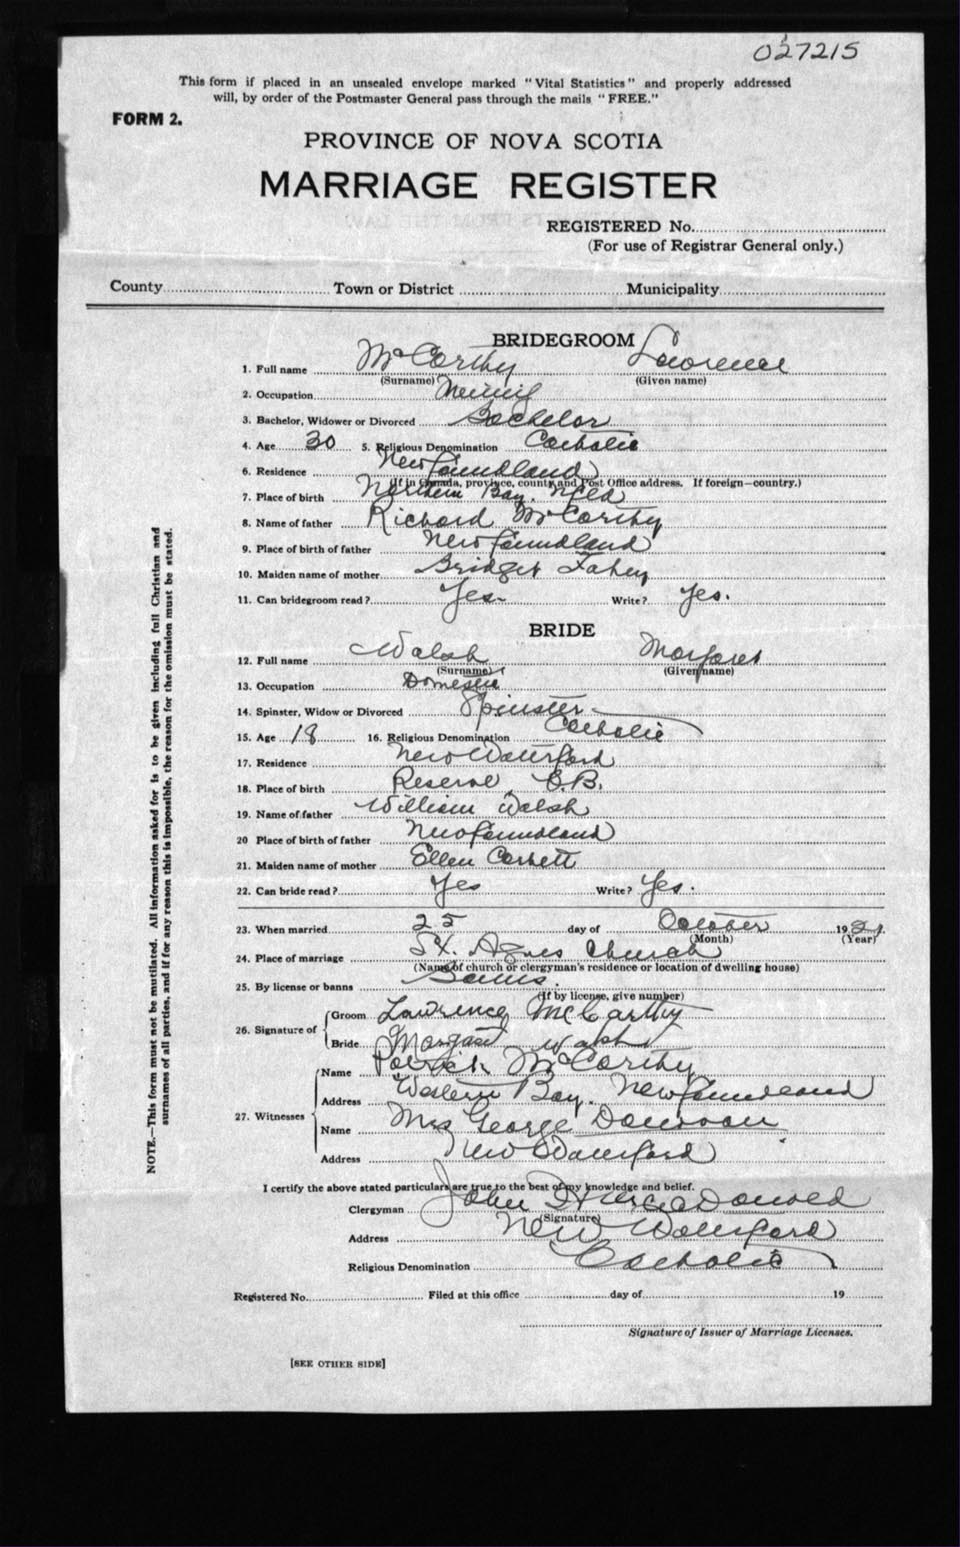 027215
This form if placed in an unsealed envelope marked "Vital Statistics" and properly addressed
will, by order of the Postmaster General pass through the mails "FREE."
FORM 2.
PROVINCE OF NOVA SCOTIA
MARRIAGE REGISTER
REGISTERED No.
(For use of Registrar General only.)
County Town or District Municipality
BRIDEGROOM
1. Full name McCarthy Lawrence
(Surname) (Given name)
2. Occupation
3. Bachelor, Widower or Divorced Bachelor
4. Age 30 5. Religious Denomination Catholic
6. Residence Newfoundland
(If in Canada, province, county and Post Office address. If foreign—country.)
7. Place of birth Northern Bay. Nfld
8. Name of father Richard McCarthy
9. Place of birth of father Newfoundland
10. Maiden name of mother Bridget Fahey
11. Can bridegroom read? Yes Write? Yes.
BRIDE
12. Full name Walsh Margaret
(Surname) (Given name)
13. Occupation Domestic
14. Spinster, Widow or Divorced Spinster
15. Age 18 16. Religious Denomination Catholic
17. Residence New Waterford
18. Place of birth Reserve, C.B.
19. Name of father William Walsh
20 Place of birth of father Newfoundland
21. Maiden name of mother Ellen Corbett
22. Can bride read? Yes Write? Yes.
23. When married 25 day of October 19
(Month) (Year)
24. Place of marriage St. Agnes Church
(Name of church or clergyman's residence or location of dwelling house)
25. By license or banns Banns.
(If by license, give number)
26. Signature of
Groom Lawrence McCarthy
Bride Margaret Walsh
27. Witnesses
Name Patrick McCarthy
Address Western Bay. Newfoundland
Name Mrs George
Address New Waterford
I certify the above stated particulars are true to the best of my knowledge and belief.
Clergyman John MacDonald
(Signature)
Address New Waterford
Religious Denomination Catholic
Registered No. Filed at this office day of 19
Signature of Issuer of Marriage Licenses.
[SEE OTHER SIDE]
NOTE.—This form must not be mutilated. All information asked for is to be given including full Christian and
surnames of all parties, and if for any reason this is impossible, the reason for the omission must be stated.